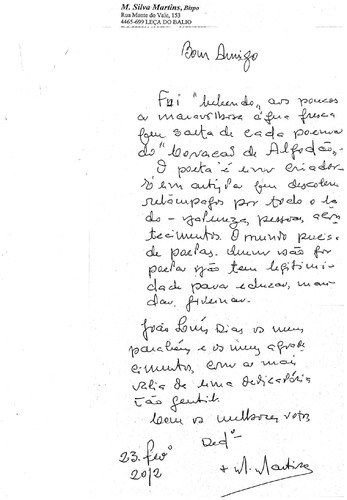 M. Silva Martins, Bispo
Rua Monte do Vale, 153
4465-699 LEÇA DO BALIO
Bom Amigo
Fui "bebendo" aos poucos
a maravilhosa água fresca
que salta de cada poema
do "Corações de Algodão".
O poeta é um criador
que descobre
relâmpagos por todo o la
do - natureza, pessoas, acon
tecimentos. O mundo precisa
de poetas. Quem não for
poeta não tem legitimi
dade para educar, man
dar, governar.
João Luís Dias os meus
parabéns e os meus agrade
cimentos, com a mais
valia de uma dedicatória
tão gentil.
Com os melhores votos
Dedº
23. fevº
2012
+ M. Martins